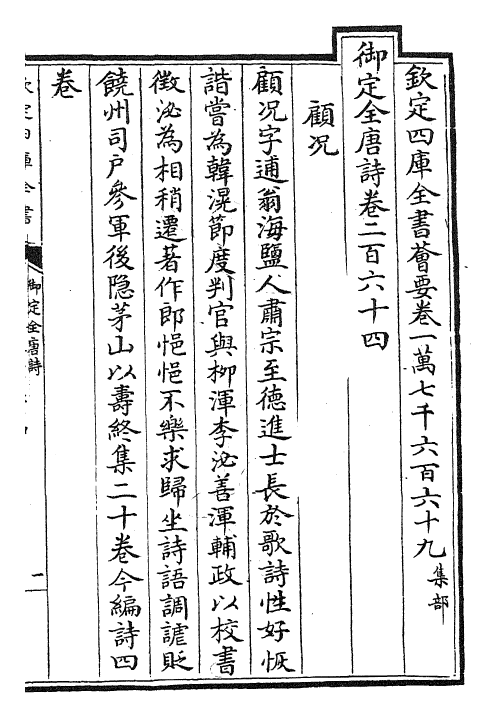 欽定四庫全書薈要卷一萬七千六百六十九 集部
御定全唐詩卷二百六十四
顧況
顧況字逋翁海鹽人肅宗至徳進士長於歌詩性好恢
諧嘗為韓滉節度判官與栁渾李泌善渾輔政以校書
徴泌為相稍遷著作郎悒悒不樂求歸坐詩語調謔貶
饒州司戶參軍後隐茅山以壽終集二十卷今編詩四
卷
御定全唐詩
二